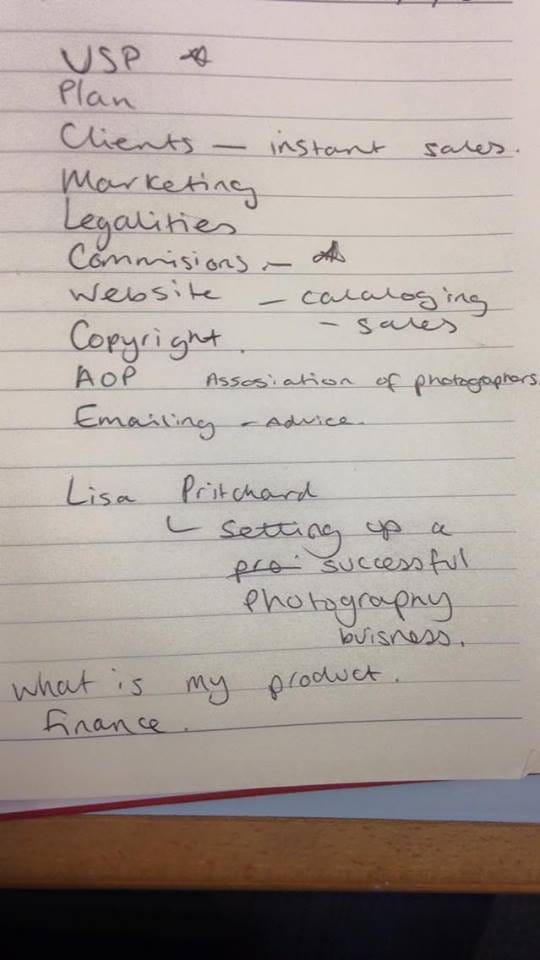 USP ☆
Plan
Clients – instant sales.
Marketing
Legalities
Commisions – ☆
Website – cataloging
– sales
Copyright.
AOP Assosiation of photographers.
Emailing – Advice.
Lisa Pritchard
Setting up a
pro successful
photography
buisness.
What is my product.
finance.